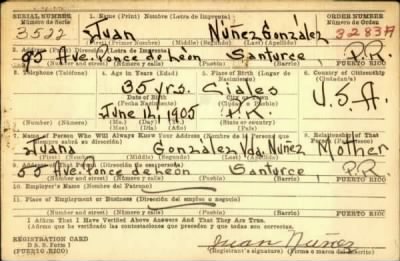 SERIAL NUMBER 1. Name (Print) Nombre (Letra de Imprenta) ORDER NUMBER
Número de Serie Número de Orden
3522 Juan Núñez González 3283A
(First) (Primer Nombre) (Middle) (Segundo) (Last) (Apellidos)
2. Address (Print) Dirección (Letra de Imprenta)
95 Ave. Ponce de León Santurce, P.R.
(Number and street) (Número y calle) PUERTO RICO
3. Telephone (Teléfono) 4. Age in Years (Edad) 5. Place of Birth (Lugar de Nacimiento) 6. Country of Citizenship (Ciudadanía)
35 yrs. Ciales
Date of Birth
(Fecha Nacimiento)
U.S.A.
June 12, 1905 P.R.
(Mo.) (Day) (Yr.) (State or country)
(Mes) (Día) (Año)
7. Name of Person Who Will Always Know Your Address 8. Relationship of That Person
Juana González Vda. Núñez Mother
9. Address of That Person (Dirección de esa persona)
55 Ave. Ponce de León Santurce P.R.
(Number and street) (Número y calle) PUERTO RICO
10. Employer's Name (Nombre del Patrono)
11. Place of Employment or Business (Dirección del empleo o negocio)
(Number and street) (Número y calle) PUERTO RICO
I Affirm That I Have Verified Above Answers And That They Are True.
Afirmo que he verificado las contestaciones que preceden y que todas son ciertas.
REGISTRATION CARD
D. S. S. Form 1
Juan Núñez
(Registrant's signature) (Firma o marca del Inscrito)